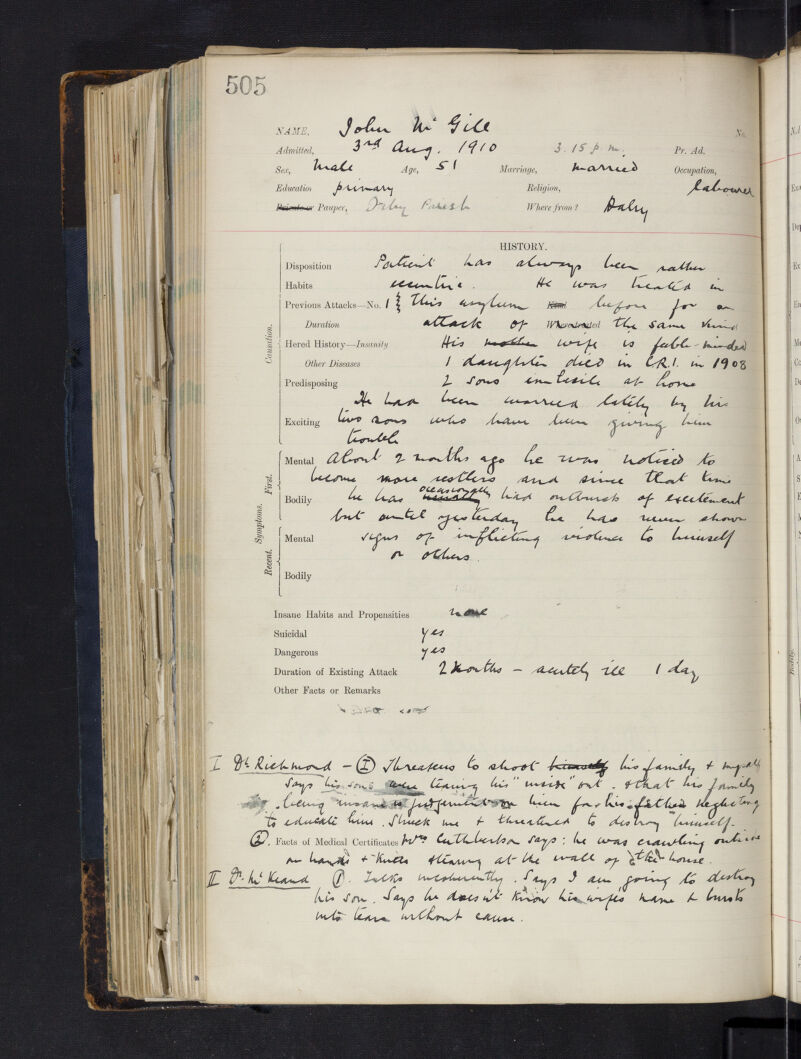 505
NAME, John McGill No.
Admitted, 3rd Aug. 1910 3.15 p.m. Pr. Ad.
Sex, Male Age, 51 Marriage, married Occupation,
Education primary Religion, labourer
Pauper, Dalry Parish Where from? Dalry
HISTORY.
Disposition Patient has always been rather
Habits eccentric. He was treated in
Previous Attacks—No. 1 this asylum before for an
Duration attack of the same kind
Hered History—Insanity His mother wife is feeble-minded
Other Diseases 1 daughter died in C.R.I. in 1908
Predisposing 2 sons imbecile at home
He had been worried lately by his
Exciting two sons who have been giving him
trouble
Causation.
Mental About 2 months ago he was noticed to
become more restless and since that time
Bodily he has usually occasionally had outbursts of excitement
but until yesterday he has never shown
Mental signs of inflicting violence to himself
or others.
Bodily
Symptoms.
First.
Recent.
Insane Habits and Propensities none
Suicidal yes
Dangerous yes
Duration of Existing Attack 2 months – acutely ill 1 day
Other Facts or Remarks
I Dr. Richmond – (1) Threatens to shoot himself his family & myself
Says his sons were tearing his "inside" out. & that his family
being insane is judgement on him for his father neglecting
to educate him. Struck me & threatened to destroy himself.
(2). Facts of Medical Certificates Mrs Cuthbertson says: he was crawling outside
on hands & knees staring at the wall of the house.
II Dr. McKeand (1). Talks incoherently. Says I am going to destroy
his son. Says he doesn't know his wife's name & bursts
into tears without cause.